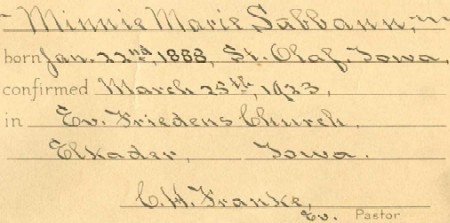 - Minnie Marie Sabbann, ~
born Jan. 22nd, 1888, St. Olaf, Iowa,
confirmed March 25th, 1923
in Ev. Friedens Church,
Elkader, Iowa.
C. H. Franke,
Ev. Pastor